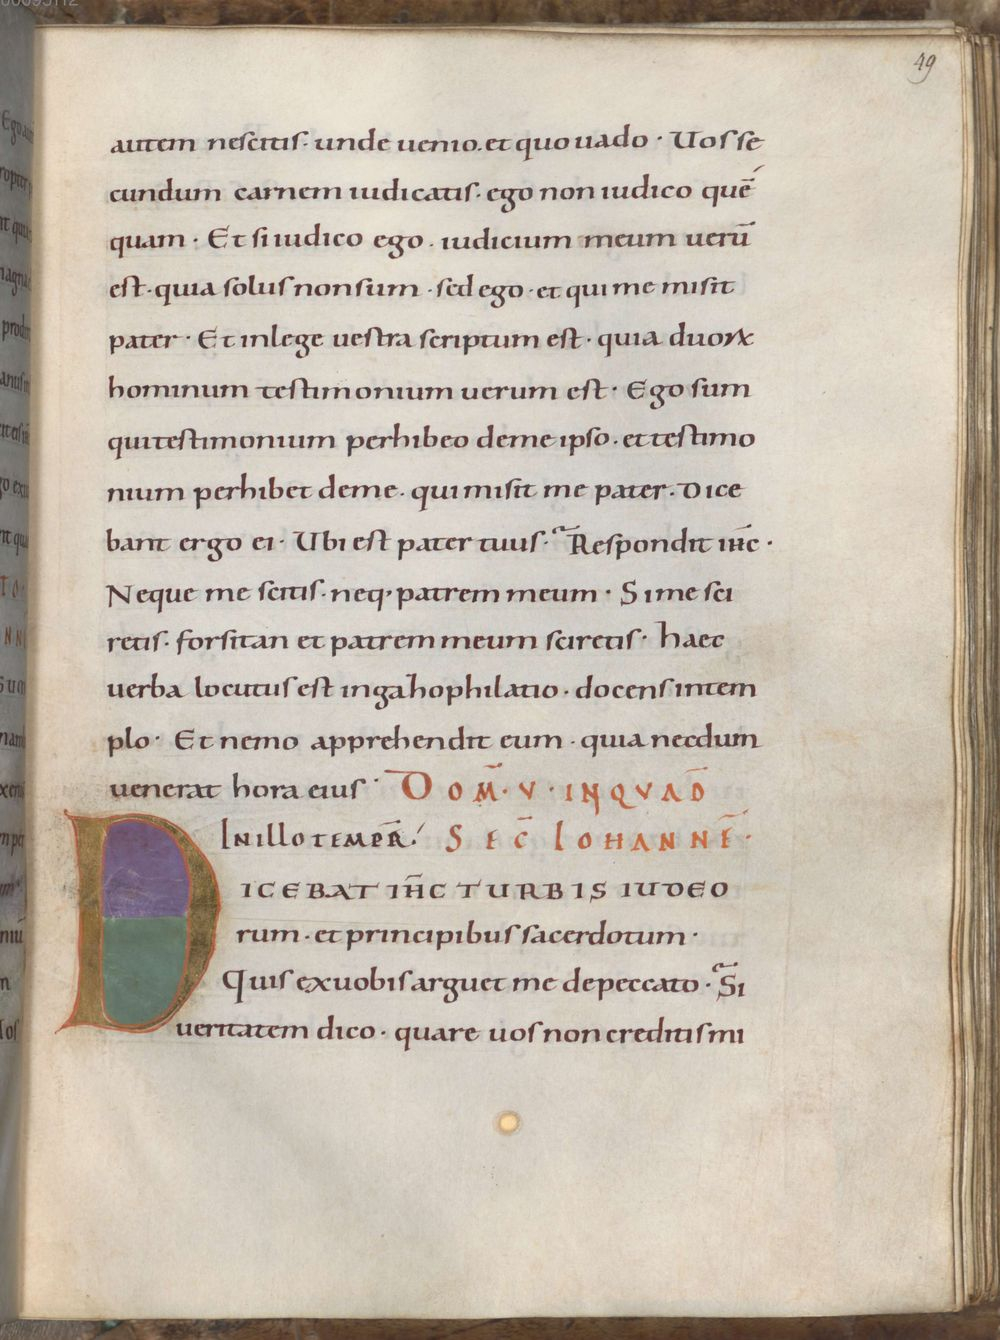 49
autem nescitis· unde uenio. et quo uado · Uos se
cundum carnem iudicatis· ego non iudico quē
quam · Et si iudico ego · iudicium meum uerū
est· quia solus non sum · sed ego · et qui me misit
pater · Et in lege uestra scriptum est · quia duoꝝ
hominum testimonium uerum est · Ego sum
qui testimonium perhibeo de me ipso · et testimo
nium perhibet de me · qui misit me pater · Dice
bant ergo ei · Ubi est pater tuus · Respondit ihc̄ ·
Neque me scitis · neq; patrem meum · Si me sci
retis · forsitan et patrem meum sciretis · haec
uerba locutus est in gazophilatio · docens in tem
plo · Et nemo apprehendit eum · quia necdum
uenerat hora eius · DOM̄ · V · IN QVAD̄
In illo tempr̄ · SEC̄ IOHANNĒ ·
DICEBAT IHC̄ TURBIS IUDEO
rum · et principibus sacerdotum ·
Quis ex uobis arguet me de peccato · Si
ueritatem dico · quare uos non creditis mi